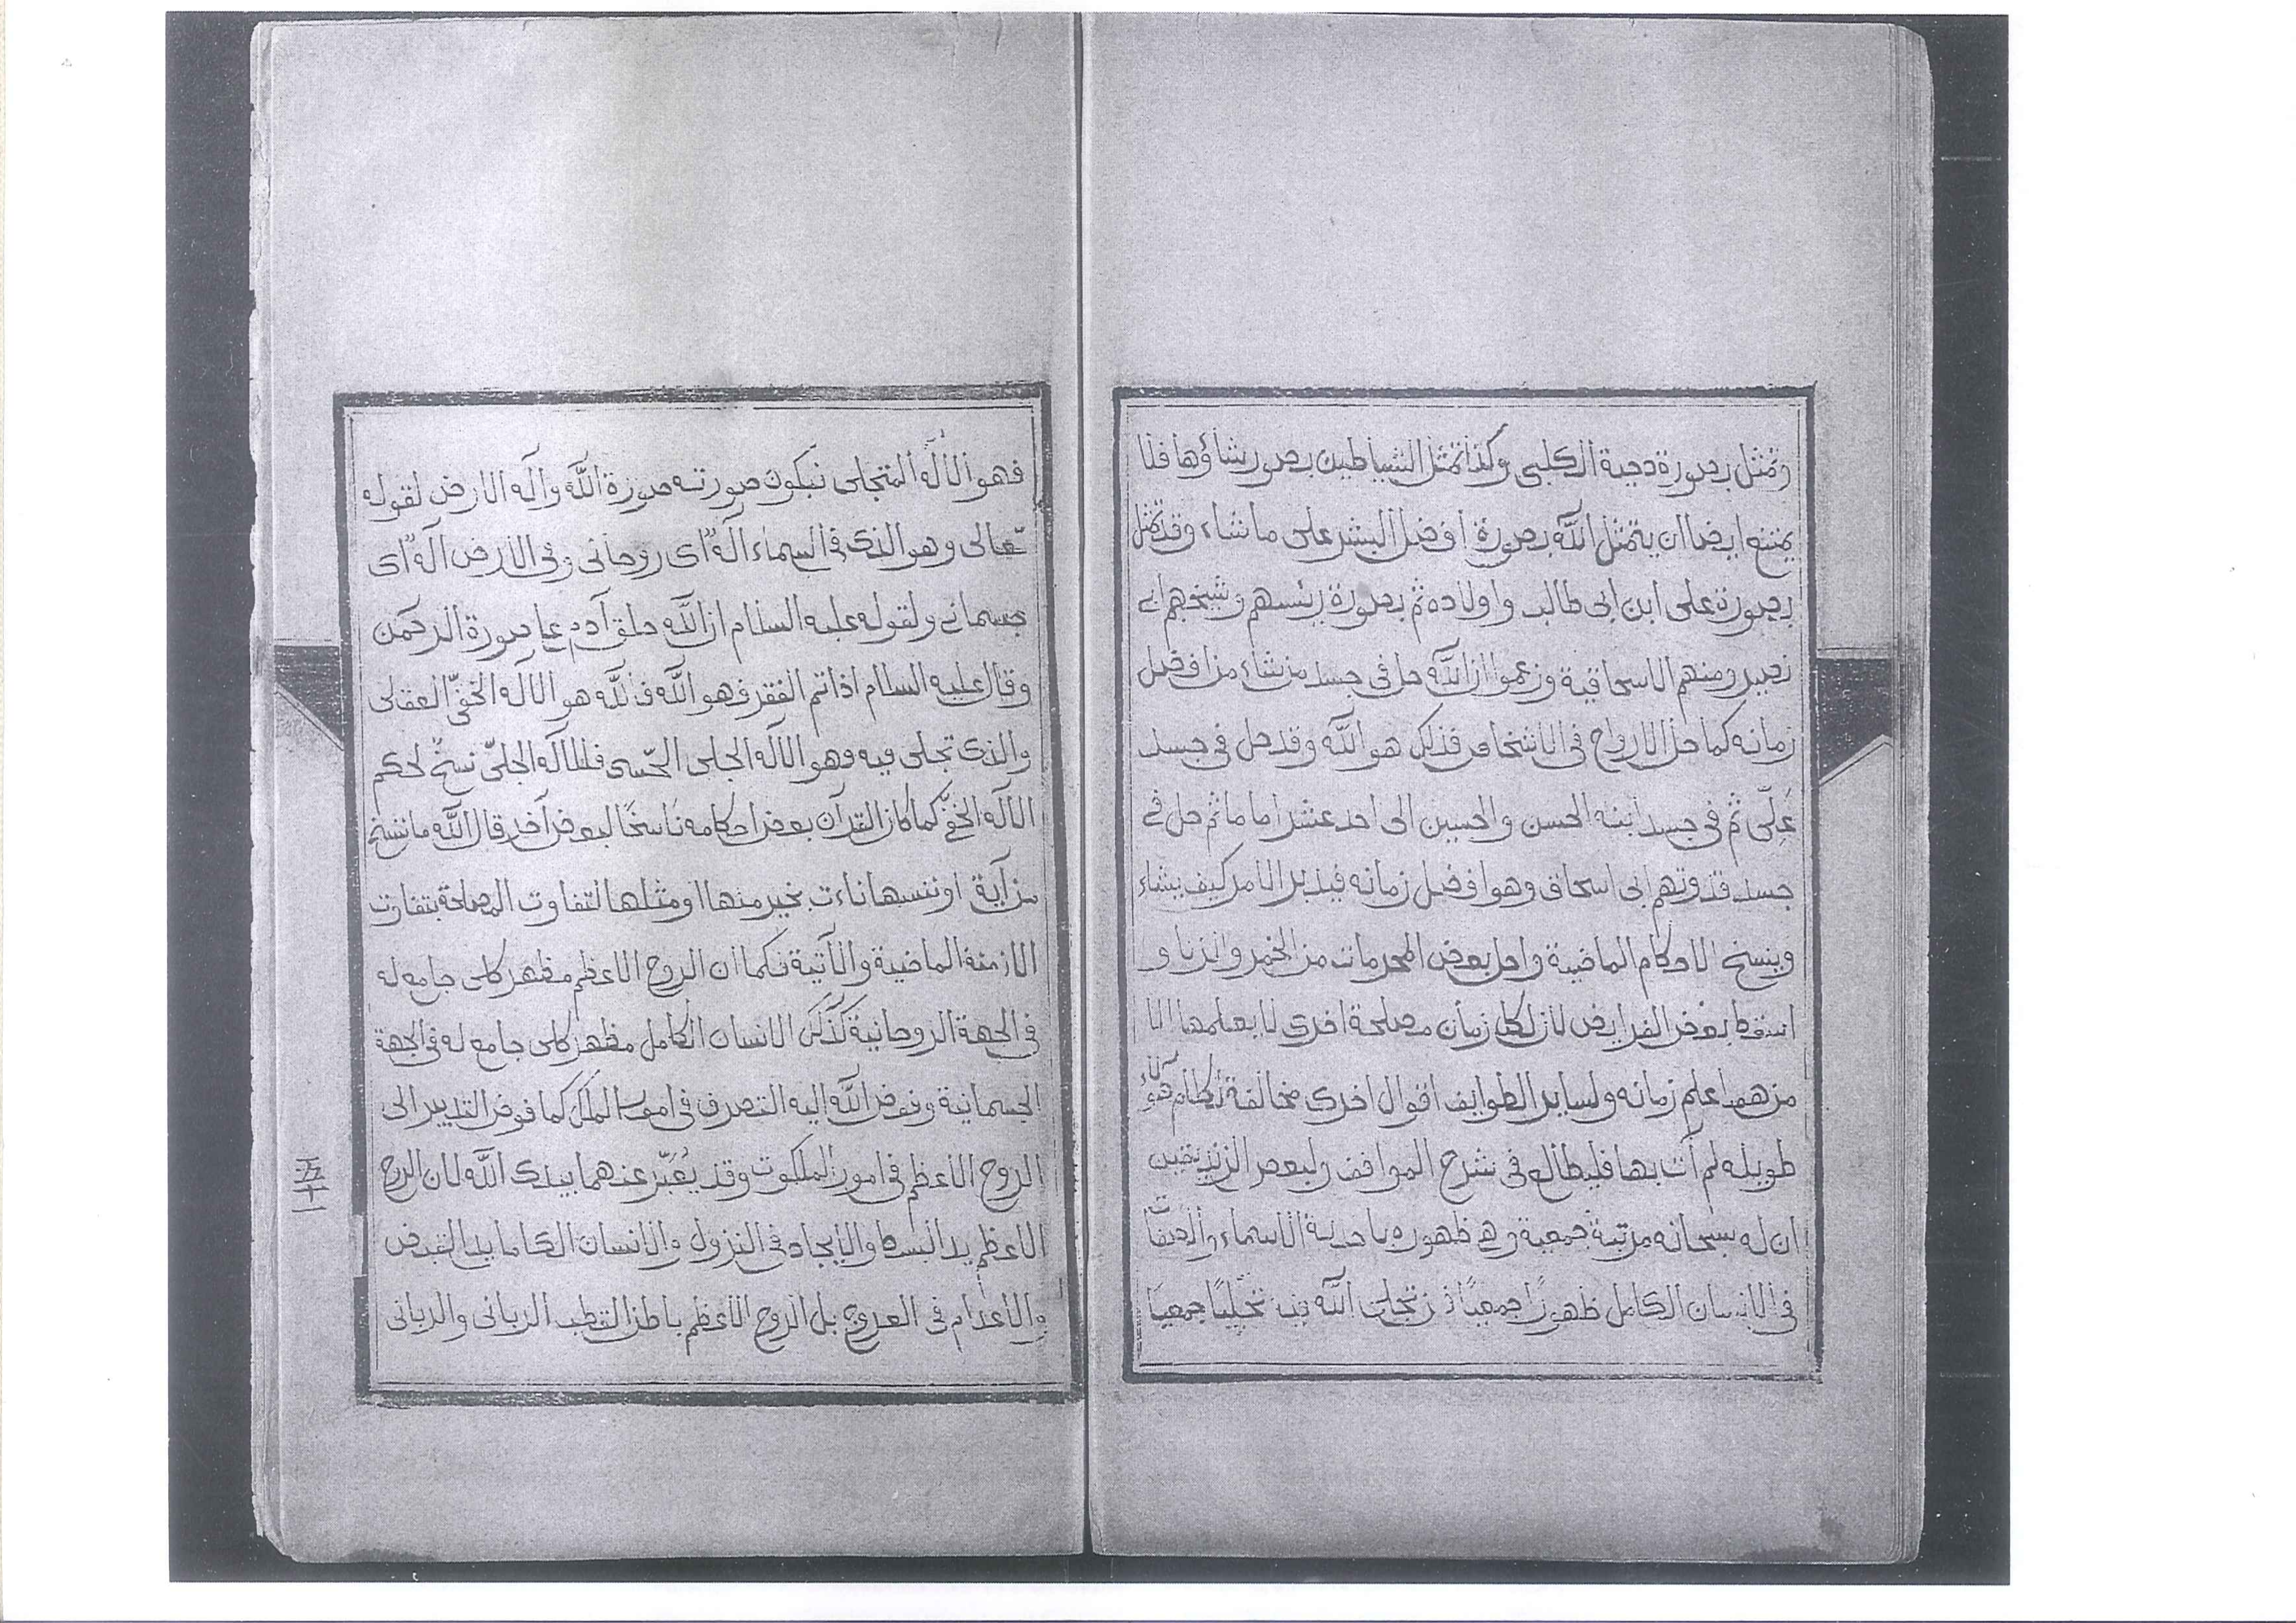 وتمثل بصورة دحية الكلبى وكذا تمثل الشياطين بصور شاؤها فلا
يمتنع ايضا ان يتمثل الله بصورة افضل البشر على ما شاء وقد تمثل
بصورة على ابن ابى طالب واولاده ثم بصورة رئيسهم وشيخهم ابى
نصير ومنهم الاسحاقية وزعموا ان الله حل فى جسد من شاء من افضل
زمانه كما حل الارواح فى الاشخاص فذلك هو الله وقد حل فى جسد
عَلِىّ ثم فى جسد ابنه الحسن والحسين الى احد عشر اماما ثم حل فى
جسد قدوتهم ابى اسحاق وهو افضل زمانه فيدبر الامر كيف يشاء
وينسخ الاحكام الماضية واحل بعض المحرمات من الخمر والزنا و
اسقط بعض الفرايض لان لكل زمان مصلحة اخرى لا يعلمها الا
من هو اعلم زمانه ولساير الطوايف اقوال اخرى مخالفة لكلام هؤلاء
طويله لم آت بها فليطالع فى شرح المواقف ولبعض الزنديقين
ان له سبحانه مرتبة جمعية وهى ظهوره باحدية الاسماء والصفات
فى الانسان الكامل ظهورًا جمعيًا تجلى الله فيه تجليًا جمعيًا
فهو الاله المتجلى فيكون صورته صورة الله واله الارض لقوله
تعالى وهو الذى فى السماء آلهٌ اى روحانى وفى الارض آلهٌ اى
جسمانى ولقوله عليه السلام ان الله خلق آدم على صورة الرحمن
وقال عليه السلام اذا تم الفقر فهو الله فالله هو الآله الخفىّ العقلى
والذى تجلى فيه وهو الآله الجلى الحسّى فللآله الجلىّ نسخ لحكم
الآله الخفىّ كما كان القرآن بعض احكامه ناسخًا لبعض آخر قال الله ما ننسخ
من آية او ننسها نات بخير منها او مثلها لتفاوت المصلحة بتفاوت
الازمنة الماضية والآتية فكما ان الروح الاعظم مظهر كلى جامع له
فى الجهة الروحانية كذلك الانسان الكامل مظهر كلى جامع له فى الجهة
الجسمانية وفوض الله اليه التصرف فى امور الملك كما فوض التدبير الى
الروح الاعظم فى امور الملكوت وقد يُعَبّر عنهما بيدى الله لان الروح
الاعظم يد البسط والايجاد فى النزول والانسان الكامل يد القبض
والاعدام فى العروج بل الروح الاعظم باطن القطب الربانى والربانى
五十一